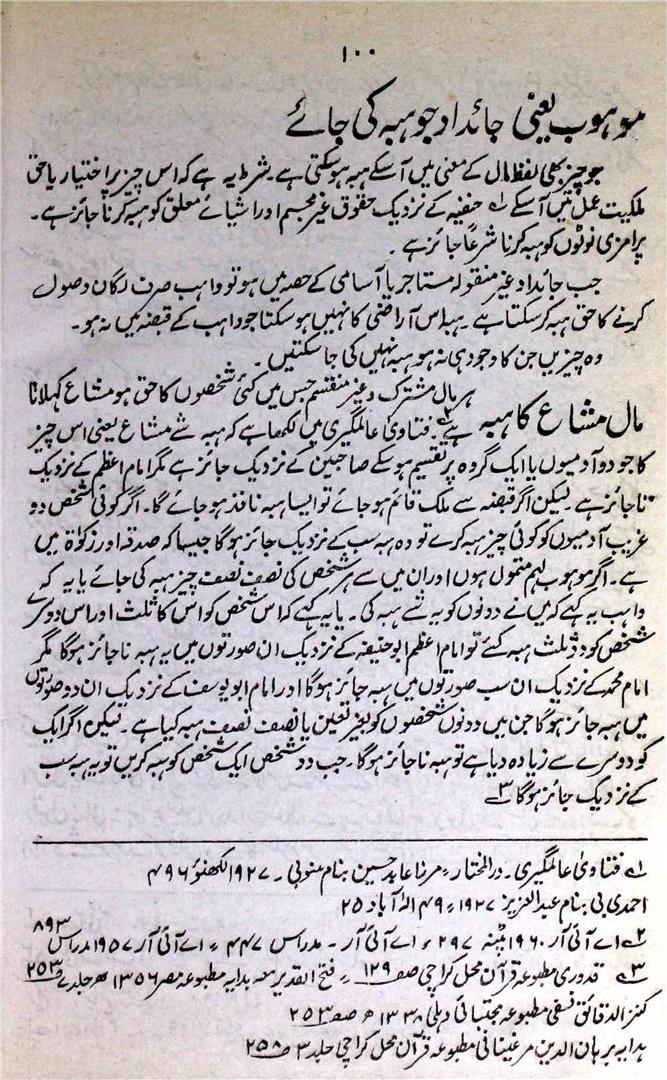 ۱۰۰
موہوب یعنی جائداد جو ہبہ کی جائے
جو چیز بھی لفظ مال کے معنی میں آ سکے ہبہ ہو سکتی ہے۔ شرط یہ ہے کہ اس چیز پر اختیار یا حق
ملکیت عمل میں آسکے ۱؎ حنفیہ کے نزدیک حقوق غیر مجسم اور اشیائے معلق کو ہبہ کرنا جائز ہے۔
پرامزی نوٹوں کو ہبہ کرنا شرعاً جائز ہے۔
جب جائداد غیر منقولہ مستاجر یا آسامی کے حصہ میں ہو تو واہب صرف لگان وصول
کرنے کا حق ہبہ کر سکتا ہے۔ ہبہ اس آراضی کا نہیں ہو سکتا جو واہب کے قبضہ میں نہ ہو۔
وہ چیزیں جن کا وجود ہی نہ ہو ہبہ نہیں کی جا سکتیں۔
ہر مال مشترک و غیر منقسم جس میں کئی شخصوں کا حق ہو مشاع کہلاتا
مال مشاع کا ہبہ ہے ۲؎۔ فتاویٰ عالمگیری میں لکھا ہے کہ ہبہ شے مشاع یعنی اس چیز
کا جو دو آدمیوں یا ایک گروہ پر تقسیم ہو سکے صاحبین کے نزدیک جائز ہے مگر امام اعظم کے نزدیک
ناجائز ہے۔ لیکن اگر قبضہ سے ملک قائم ہو جائے تو ایسا ہبہ نافذ ہو جائے گا۔ اگر کوئی شخص دو
غریب آدمیوں کو کوئی چیز ہبہ کرے تو وہ ہبہ سب کے نزدیک جائز ہوگا جیسا کہ صدقہ اور زکوٰۃ میں
ہے۔ اگر موہوب لہم متمول ہوں اور ان میں سے ہر شخص کی نصف نصف چیز ہبہ کی جائے یا یہ کہ
واہب یہ کہے کہ میں نے دونوں کو یہ شے ہبہ کی۔ یا یہ کہے کہ اس شخص کو اس کا ثلث اور اس دوسرے
شخص کو دو ثلث ہبہ کئے تو امام اعظم ابو حنیفہ کے نزدیک ان صورتوں میں یہ ہبہ ناجائز ہوگا مگر
امام محمد کے نزدیک ان سب صورتوں میں ہبہ جائز ہوگا اور امام ابو یوسف کے نزدیک ان دو صورتوں
میں ہبہ جائز ہوگا جن میں دونوں شخصوں کو بغیر تعین یا نصف نصف ہبہ کیا ہے۔ لیکن اگر ایک
کو دوسرے سے زیادہ دیا ہے تو ہبہ ناجائز ہوگا۔ جب دو شخص ایک شخص کو ہبہ کریں تو یہ ہبہ سب
کے نزدیک جائز ہوگا ۳؎
۱؎ فتاویٰ عالمگیری۔ درالمختار، مرزا عابد حسین بنام منوبی۔ ۱۹۲۷ لکھنؤ ۴۹۶
احمدی بی بنام عبدالعزیز ۱۹۲۷، ۴۹ الہ آباد ۲۵
۲؎ اے آئی آر ۱۹۶۰ پٹنہ ۲۹۷، اے آئی آر۔ مدراس ۴۴۷، اے آئی آر ۱۹۵۷ مدراس ۸۹۳
۳؎ قدوری مطبوعہ قرآن محل کراچی صفہ ۱۲۹، فتح القدیر معہ ہدایہ مطبوعہ مصر ۱۳۵۶ھ جلد ۷ ص ۲۵۳
کنز الدقائق نسفی مطبوعہ مجتبائی دہلی ۱۳۳۸ھ صفہ ۳۵۲
ہدایہ برہان الدین مرغینانی مطبوعہ قرآن محل کراچی جلد ۳ ص ۲۵۸